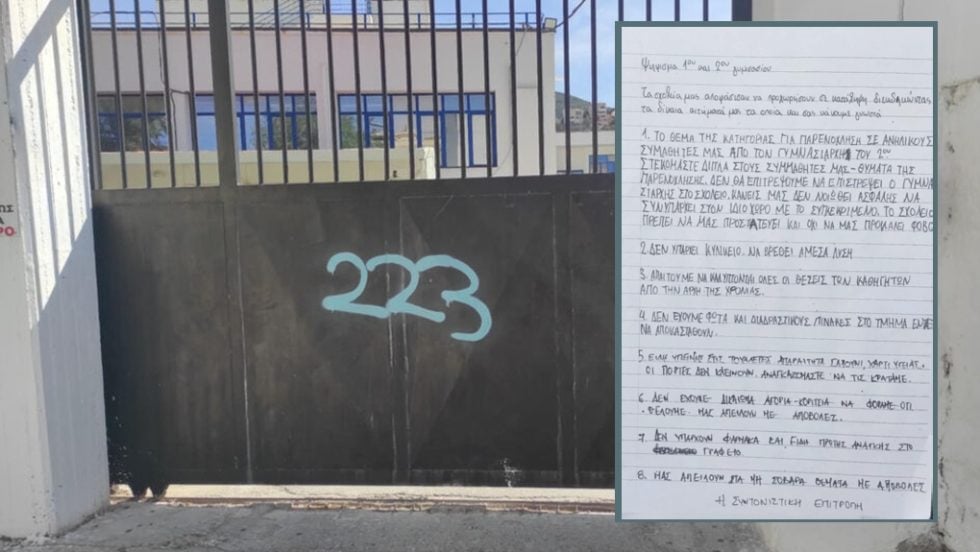 ΗΣ
Α
ΡΟ
223
Ψήφισμα 1ου και 2ου γυμνασίου
Τα σχολεία μας αποφάσισαν να προχωρήσουν σε κατάληψη διεκδικώντας
τα δίκαια αιτήματά μας τα οποία και σας κάνουμε γνωστά
1. ΤΟ ΘΕΜΑ ΤΗΣ ΚΑΤΗΓΟΡΙΑΣ ΓΙΑ ΠΑΡΕΝΟΧΛΗΣΗ ΣΕ ΑΝΗΛΙΚΟΥΣ
ΣΥΜΑΘΗΤΕΣ ΜΑΣ ΑΠΟ ΤΟΝ ΓΥΜΝΑΣΙΑΡΧΗ ΤΟΥ 2ου
ΣΤΕΚΟΜΑΣΤΕ ΔΙΠΛΑ ΣΤΟΥΣ ΣΥΜΜΑΘΗΤΕΣ ΜΑΣ - ΘΥΜΑΤΑ ΤΗΣ
ΠΑΡΕΝΟΧΛΗΣΗΣ. ΔΕΝ ΘΑ ΕΠΙΤΡΕΨΟΥΜΕ ΝΑ ΕΠΙΣΤΡΕΨΕΙ Ο ΓΥΜΝΑ
ΣΙΑΡΧΗΣ ΣΤΟ ΣΧΟΛΕΙΟ. ΚΑΝΕΙΣ ΜΑΣ ΔΕΝ ΝΟΙΩΘΕΙ ΑΣΦΑΛΗΣ ΝΑ
ΣΥΝΥΠΑΡΚΕΙ ΣΤΟΝ ΙΔΙΟ ΧΩΡΟ ΜΕ ΤΟ ΣΥΓΚΕΚΡΙΜΕΝΟ. ΤΟ ΣΧΟΛΕΙΟ
ΠΡΕΠΕΙ ΝΑ ΜΑΣ ΠΡΟΣΤΑΤΕΥΕΙ ΚΑΙ ΟΧΙ ΝΑ ΜΑΣ ΠΡΟΚΑΛΕΙ ΦΟΒΟ
2. ΔΕΝ ΥΠΑΡΧΕΙ ΚΥΛΙΚΕΙΟ. ΝΑ ΒΡΕΘΕΙ ΑΜΕΣΑ ΛΥΣΗ
3. ΑΠΑΙΤΟΥΜΕ ΝΑ ΚΑΛΥΠΤΟΝΤΑΙ ΟΛΕΣ ΟΙ ΘΕΣΕΙΣ ΤΩΝ ΚΑΘΗΓΗΤΩΝ
ΑΠΟ ΤΗΝ ΑΡΧΗ ΤΗΣ ΧΡΟΝΙΑΣ.
4. ΔΕΝ ΕΧΟΥΜΕ ΦΩΤΑ ΚΑΙ ΔΙΑΔΡΑΣΤΙΚΟΥΣ ΠΙΝΑΚΕΣ ΣΤΟ ΤΜΗΜΑ
ΝΑ ΑΠΟΚΑΣΤΑΘΟΥΝ.
5. ΕΙΔΗ ΥΓΕΙΝΗΣ ΣΤΙΣ ΤΟΥΑΛΕΤΕΣ ΑΠΑΡΑΙΤΗΤΑ ΣΑΠΟΥΝΙ, ΧΑΡΤΙ ΥΓΕΙΑΣ.
ΟΙ ΠΟΡΤΕΣ ΔΕΝ ΚΛΕΙΝΟΥΝ. ΑΝΑΓΚΑΖΟΜΑΣΤΕ ΝΑ ΤΙΣ ΚΡΑΤΑΜΕ.
6. ΔΕΝ ΕΧΟΥΜΕ ΔΙΚΑΙΩΜΑ ΑΓΟΡΙΑ-ΚΟΡΙΤΣΙΑ ΝΑ ΦΟΡΑΜΕ ΟΤΙ
ΘΕΛΟΥΜΕ. ΜΑΣ ΑΠΕΙΛΟΥΝ ΜΕ ΑΠΟΒΟΛΕΣ.
7. ΔΕΝ ΥΠΑΡΧΟΥΝ ΦΑΡΜΑΚΑ ΚΑΙ ΕΙΔΗ ΠΡΩΤΗΣ ΑΝΑΓΚΗΣ ΣΤΟ
ΓΡΑΦΕΙΟ
8. ΜΑΣ ΑΠΕΙΛΟΥΝ ΓΙΑ ΜΗ ΣΟΒΑΡΑ ΘΕΜΑΤΑ ΜΕ ΑΠΟΒΟΛΕΣ
Η ΣΥΝΤΟΝΙΣΤΙΚΗ ΕΠΙΤΡΟΠΗ